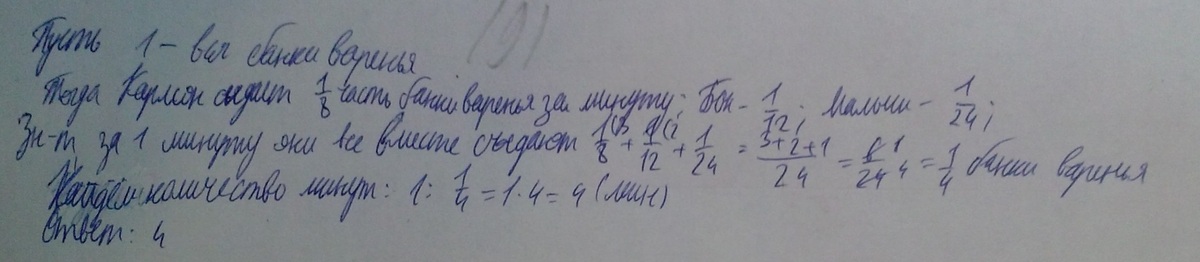 Пусть 1 – вся банка варенья (9)
Тогда Карлсон съедает 1/8 часть банки варенья за минуту; Бок – 1/12; малыш – 1/24;
Зн-т, за 1 минуту они все вместе съедают 1/8 (3 + 1/12 (2 + 1/24 = 3+2+1/24 = 6 1/24 4 = 1/4 банки варенья
Найдём количество минут: 1 : 1/4 = 1·4 = 4 (мин)
Ответ: 4